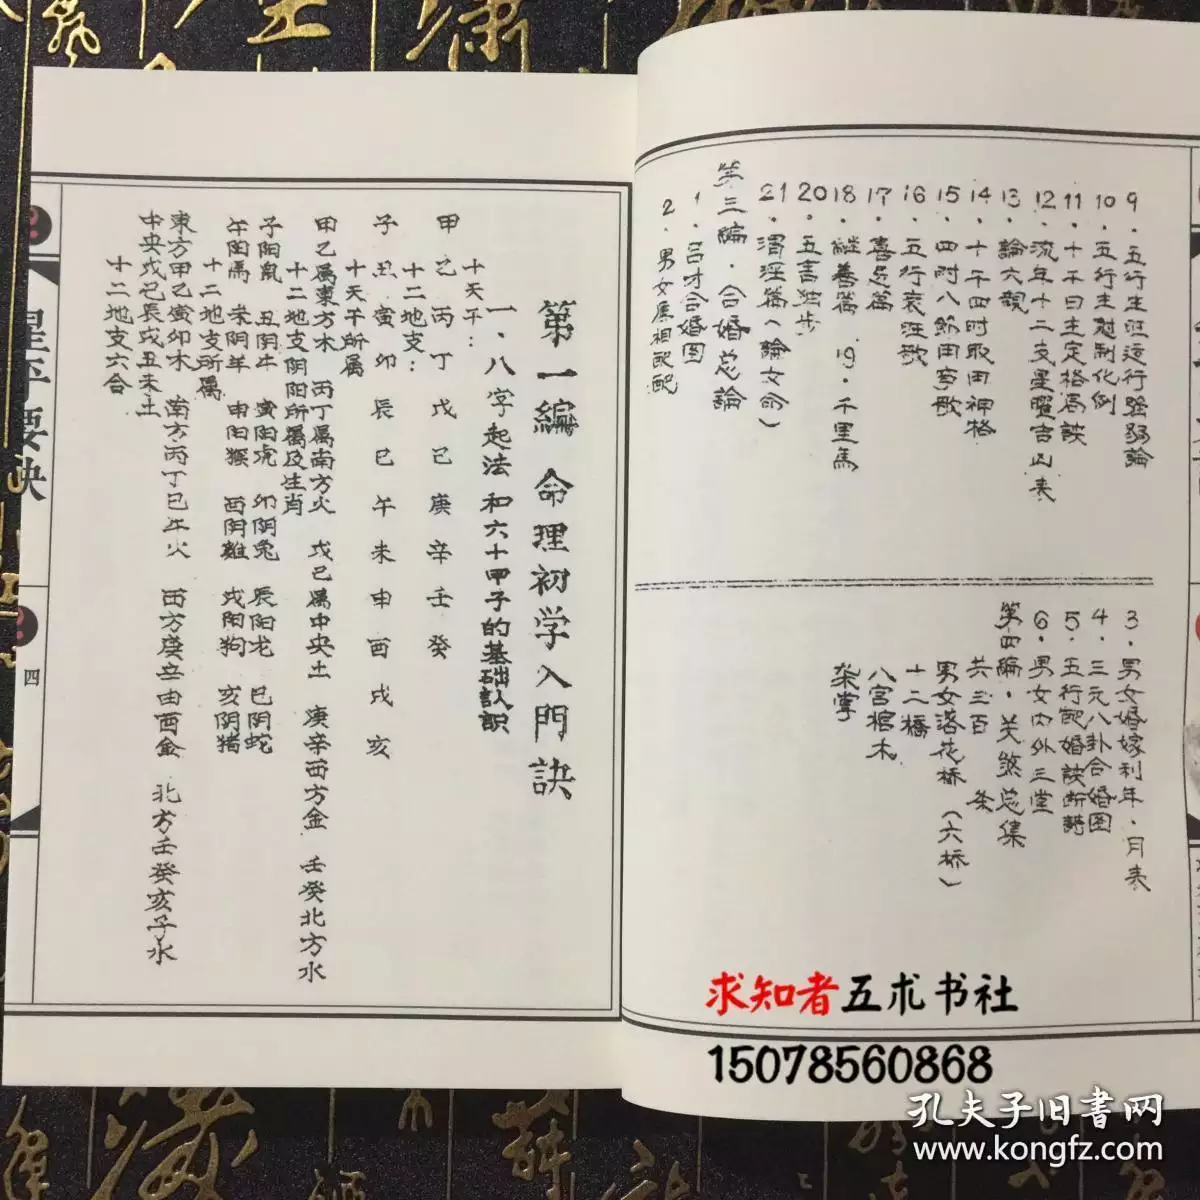 9．五行生旺运行强弱論
10．五行生尅制化例
11．十干日主定格局訣
12．流年十二支星曜吉凶表
13．論六親
14．十干四时取用神格
15．四时八節田事歌
16．五行衰旺歌
17．喜忌篇
18．継善篇 19．千里馬
20．五言独步
21．渭泾篇（論女命）
第三编．合婚总論
1．吕才合婚图
2．男女属相配配
3．男女婚嫁利年．月表
4．三元八卦合婚图
5．五行配婚訣断語
6．男女内外三堂
第四编．关煞总集
共三百 条
男女落花桥（六桥）
十二橋
八宫棺木
架掌
第一編 命理初学入門訣
一．八字起法和六十甲子的基础认识
十天干：
甲 乙 丙 丁 戊 己 庚 辛 壬 癸
十二地支：
子 丑 寅 卯 辰 巳 午 未 申 酉 戌 亥
十天干所属
甲乙属東方木 丙丁属南方火 戊己属中央土 庚辛西方金 壬癸北方水
十二地支阴阳所属及生肖
子阳鼠 丑阴牛 寅阳虎 卯阴兔 辰阳龙 巳阴蛇
午阳馬 未阴羊 申阳猴 酉阴雞 戌阳狗 亥阴猪
十二地支所属
東方甲乙寅卯木 南方丙丁巳午火 西方庚辛申酉金 北方壬癸亥子水
中央戊己辰戌丑未土
十二地支六合
星平要诀
四
求知者五术书社
15078560868
孔夫子旧書网
www.kongfz.com